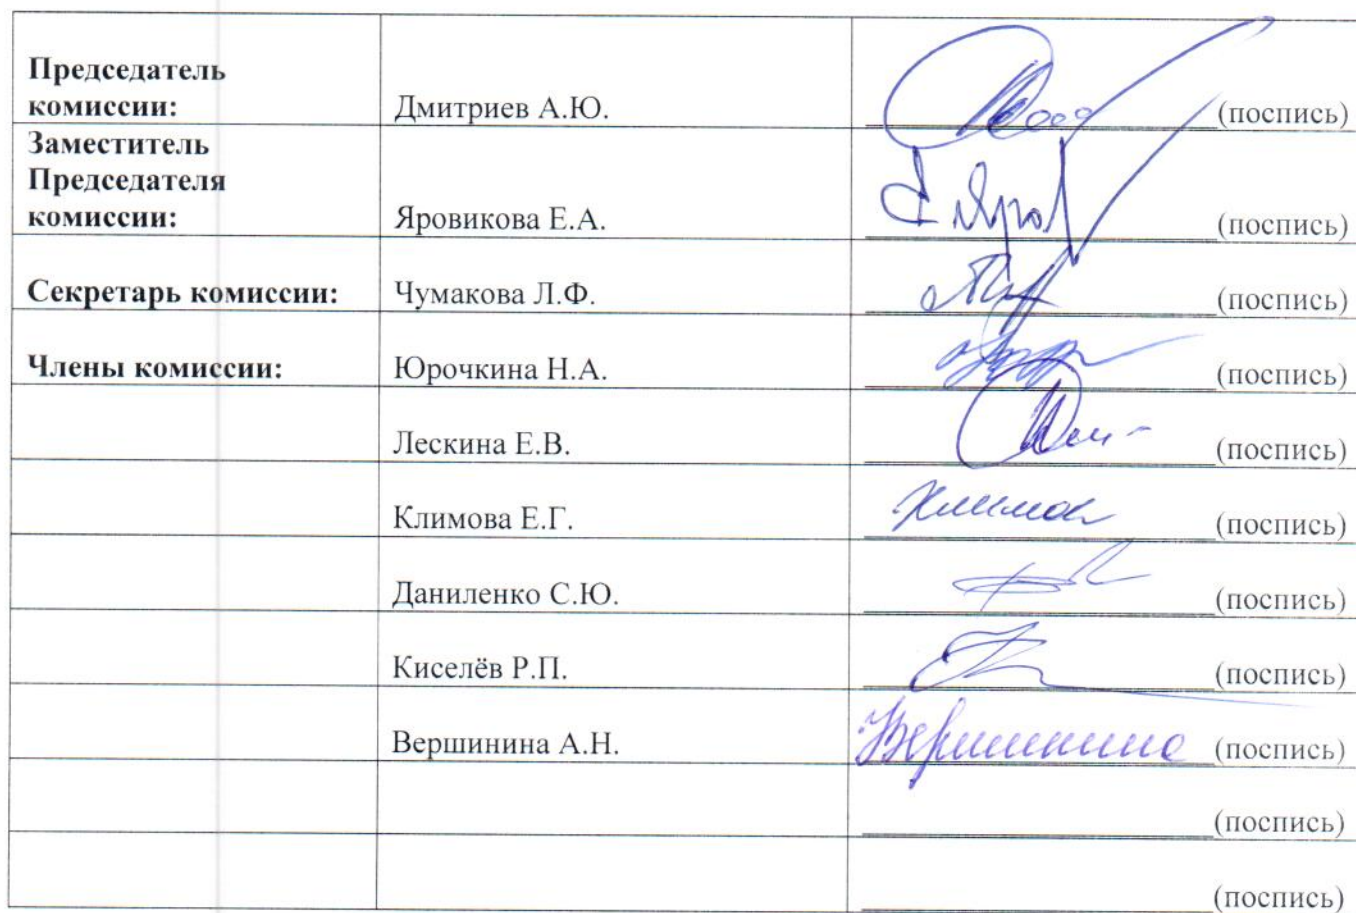 Председатель
комиссии:
Дмитриев А.Ю.
(поспись)
Заместитель
Председателя
комиссии:
Яровикова Е.А.
(поспись)
Секретарь комиссии:
Чумакова Л.Ф.
(поспись)
Члены комиссии:
Юрочкина Н.А.
(поспись)
Лескина Е.В.
(поспись)
Климова Е.Г.
(поспись)
Даниленко С.Ю.
(поспись)
Киселёв Р.П.
(поспись)
Вершинина А.Н.
Вершинина
(поспись)
(поспись)
(поспись)